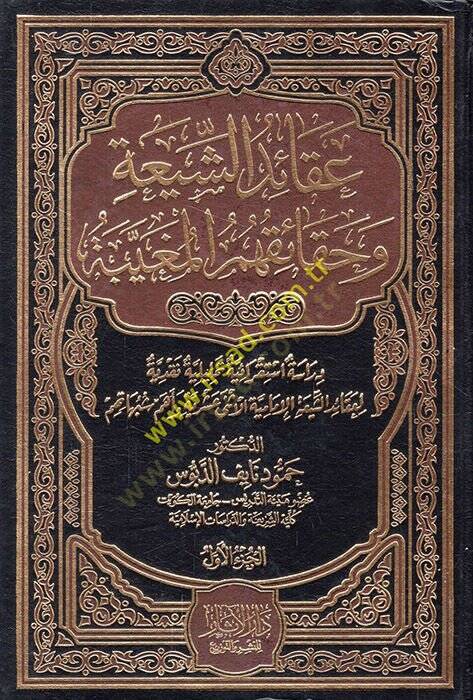 عَقَائِدُ الشِّيعَةِ
وَحَقَائِقُهُمُ المُغَيَّبَةُ
دِرَاسَةٌ اسْتِقْرَائِيَّةٌ تَحْلِيلِيَّةٌ نَقْدِيَّةٌ
لِعَقَائِدِ الشِّيعَةِ الإِمَامِيَّةِ الاثْنَيْ عَشْرِيَّةِ وَأَهَمِّ شُبُهَاتِهِمْ
الدُّكْتُور
حَمُود نَايِف الدَّبُوس
عضو هيئة التدريس - جامعة الكويت
كلية الشريعة والدراسات الإسلامية
الجُزْءُ الأَوَّلُ
دار الآثار
للنشر والتوزيع
www.irsad.com.tr
www.irsad.com.tr